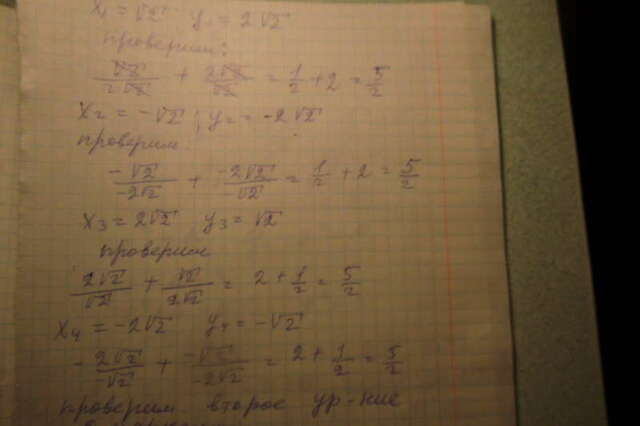 x₁ = √2 y₁ = 2√2
проверим:
√2/2√2 + 2√2/√2 = 1/2 + 2 = 5/2
x₂ = -√2; y₂ = -2√2
проверим:
-√2/-2√2 + -2√2/√2 = 1/2 + 2 = 5/2
x₃ = 2√2 y₃ = √2
проверим
2√2/√2 + √2/2√2 = 2 + 1/2 = 5/2
x₄ = -2√2 y₄ = -√2
-2√2/-√2 + -√2/-2√2 = 2 + 1/2 = 5/2
проверим второе ур-ние